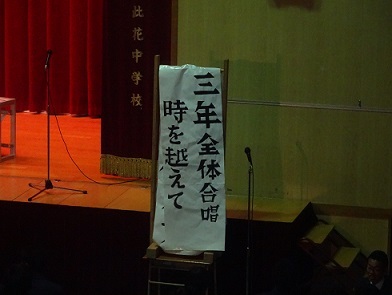 此花中学校
三年全体合唱
時を越えて